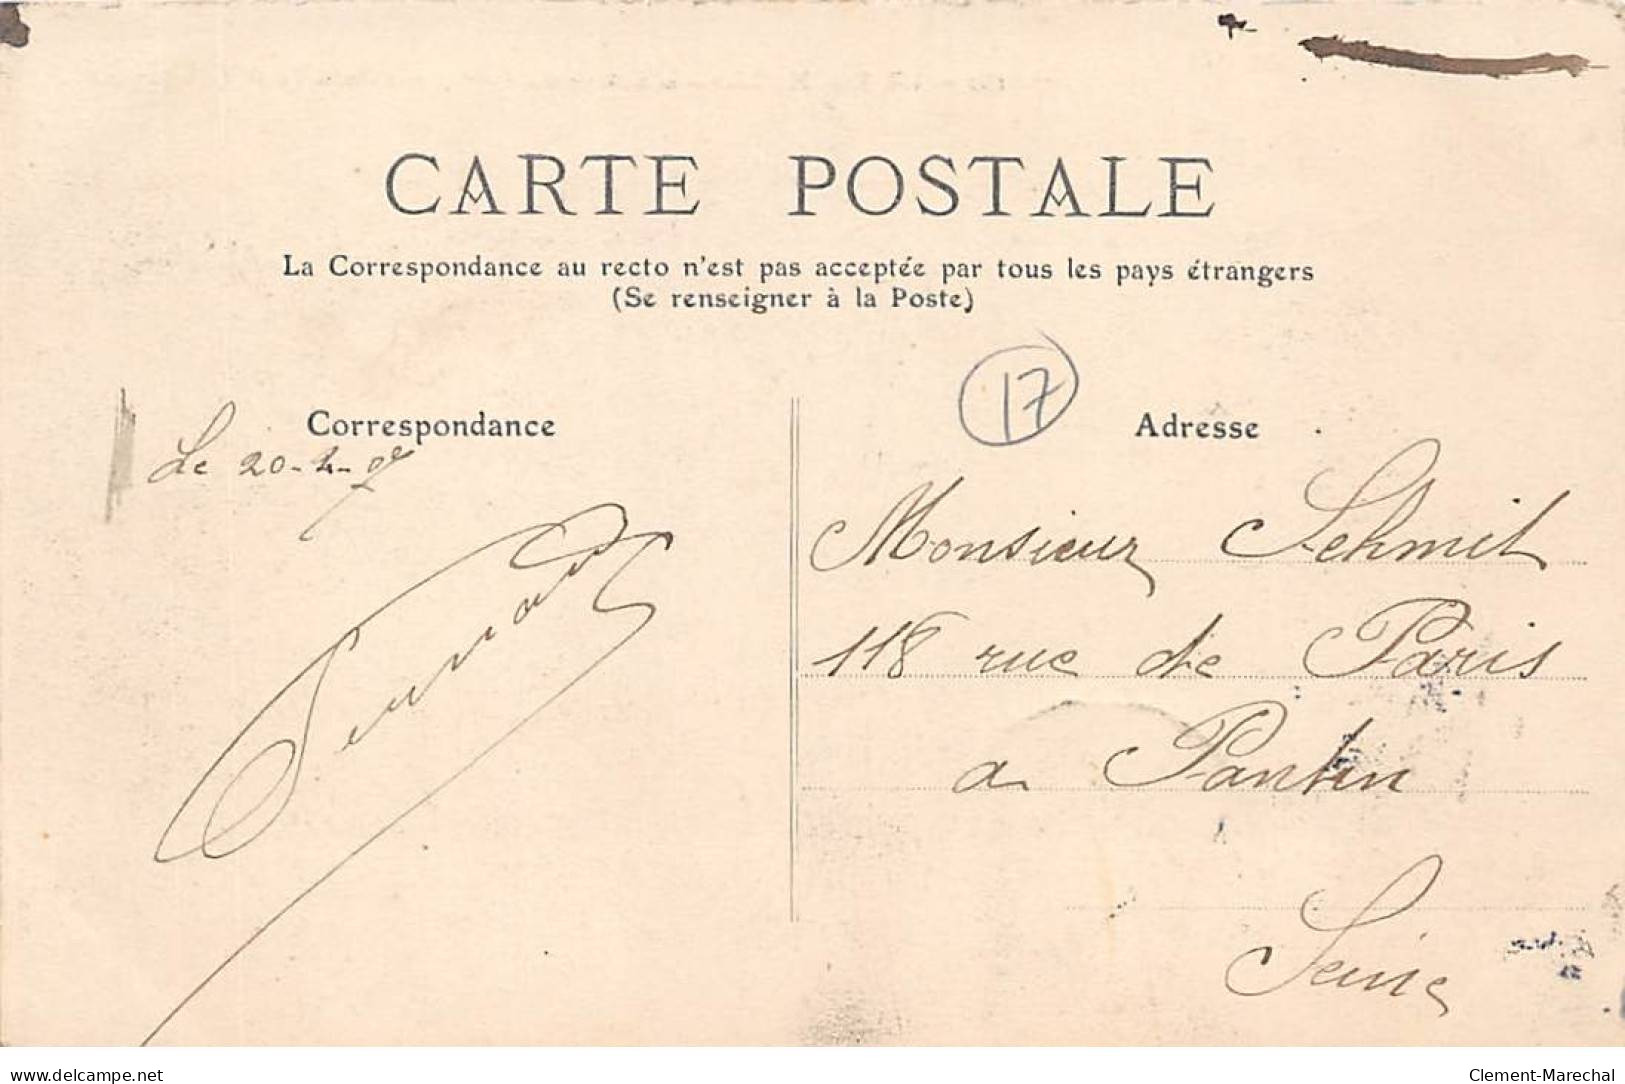 CARTE POSTALE
La Correspondance au recto n'est pas acceptée par tous les pays étrangers
(Se renseigner à la Poste)
17
Correspondance
Le 20-4-07
Adresse
Monsieur Schmit
118 rue de Paris
a Pantin
Seine
www.delcampe.net
Clement-Marechal